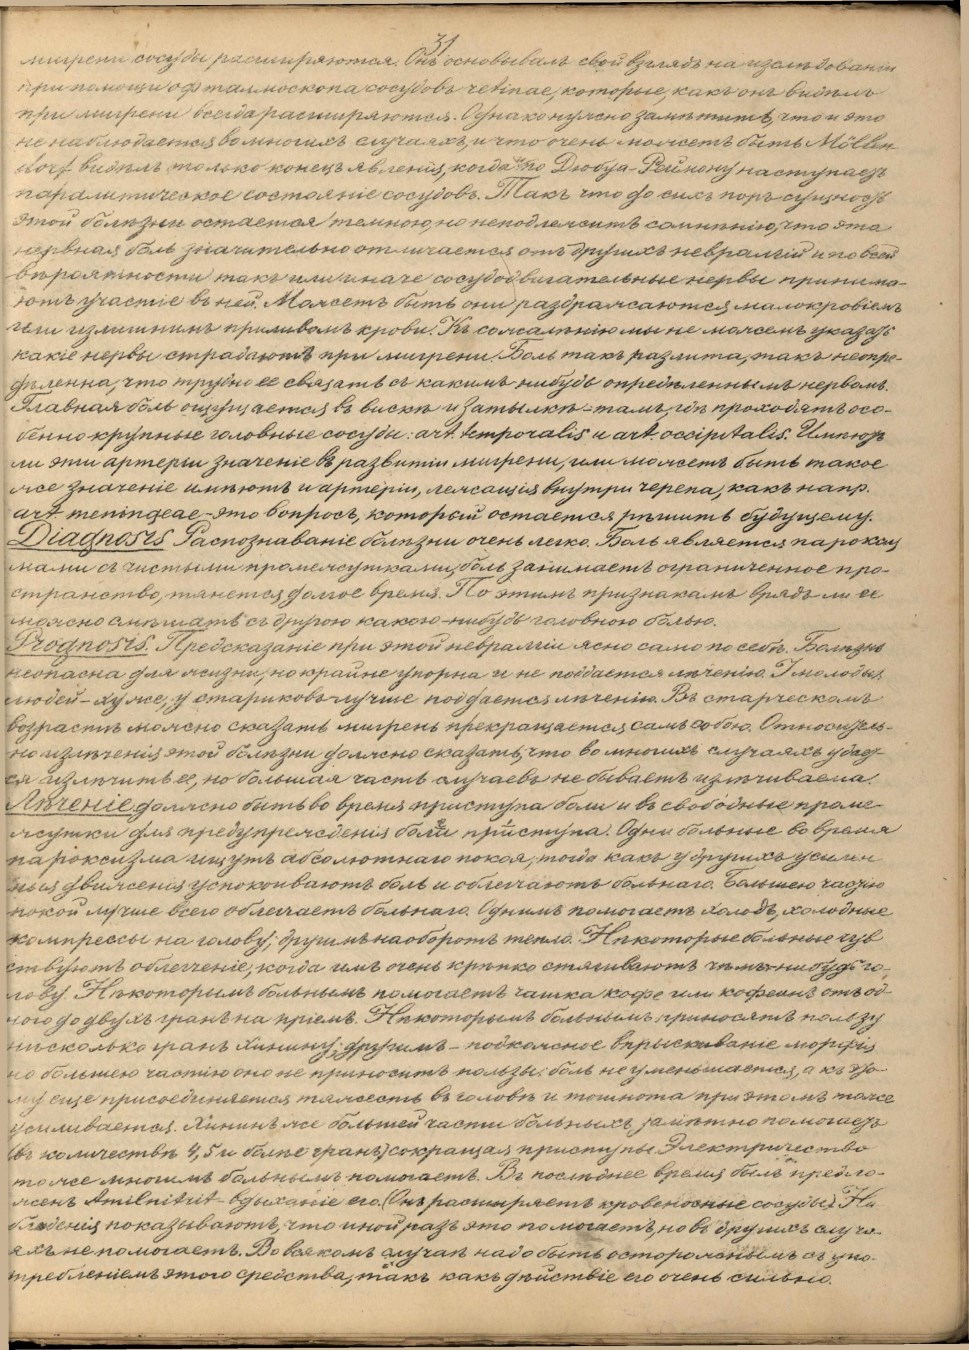 31
мигрени сосуды расширяются. Онъ основывалъ свой взглядъ на изслѣдованіи
при помощи офталмоскопа сосудовъ retinae, которые, какъ онъ видѣлъ
при мигрени всегда расширяются. Однако нужно замѣтить, что и это
не наблюдается во многихъ случаяхъ, и что очень можетъ быть Möllen
dorf видѣлъ только конецъ явленія, когда по Дюбуа-Реймону наступаетъ
паралитическое состояніе сосудовъ. Такъ что до сихъ поръ сущность
этой болѣзни остается темною, но неподлежитъ сомнѣнію, что эта
нервная боль значительно отличается отъ другихъ невралгій и по всей
вѣроятности такъ или иначе сосудодвигательные нервы принима-
ютъ участіе въ ней. Можетъ быть они раздражаются малокровіемъ
или излишнимъ приливомъ крови. Къ сожалѣнію мы не можемъ указать
какіе нервы страдаютъ при мигрени. Боль такъ разлита, такъ неопре-
дѣленна, что трудно ее связать съ какимъ нибудь опредѣленнымъ нервомъ.
Главная боль ощущается въ вискѣ и затылкѣ - тамъ, гдѣ проходятъ осо-
бенно крупные головные сосуды: art. temporalis и art. occipitalis. Имѣютъ
ли эти артеріи значеніе въ развитіи мигрени, или можетъ быть такое
же значеніе имѣютъ и артеріи, лежащія внутри черепа, какъ напр.
art meningeae - это вопросъ, который остается рѣшить будущему.
Diagnosis Распознаваніе болѣзни очень легко. Боль является пароксиз
мами съ чистыми промежутками, боль занимаетъ ограниченное про-
странство, тянется долгое время. По этимъ признакамъ врядъ ли ее
можно смѣшать съ другою какою-нибудь головною болью.
Prognosis. Предсказаніе при этой невралгіи ясно само по себѣ. Болѣзнь
неопасна для жизни, но крайне упорна и не поддается лѣченію. У молодыхъ
людей - хуже, у стариковъ лучше поддается лѣченію. Въ старческомъ
возрастѣ можно сказать мигрень прекращается самъ собою. Относитель-
но излѣченія этой болѣзни должно сказать, что во многихъ случаяхъ удает
ся излѣчить ее, но большая часть случаевъ не бываетъ излѣчиваема.
Лѣченіе должно быть во время приступа боли и въ свободные проме-
жутки для предупрежденія боли приступа. Одни больные во время
пароксизма ищутъ абсолютнаго покоя, тогда какъ у другихъ усилен
ныя движенія успокоиваютъ боль и облегчаютъ больнаго. Большею частію
покой лучше всего облегчаетъ больнаго. Однимъ помогаетъ холодъ, холодные
компрессы на голову; другимъ наоборотъ тепло. Нѣкоторые больные чув
ствуютъ облегченіе, когда имъ очень крѣпко стягиваютъ чѣмъ-нибудь го-
лову. Нѣкоторымъ больнымъ помогаетъ чашка кофе или кофеинъ отъ од
ного до двухъ гранъ на пріемъ. Нѣкоторымъ больнымъ приносятъ пользу
нѣсколько гранъ хинину; другимъ - подкожное впрыскиваніе морфія
но большею частію оно не приноситъ пользы: боль не уменьшается, а къ то-
му еще присоединяется тяжесть въ головѣ и тошнота при этомъ тоже
усиливается. Хининъ же большей части больныхъ замѣтно помогаетъ
(въ количествѣ 4, 5 и болѣе гранъ) сокращая приступы. Электричество
тоже многимъ больнымъ помогаетъ. Въ послѣднее время былъ предло-
женъ Amilnitrit - вдыханіе его. (Онъ расширяетъ кровеносные сосуды). На
блюденія показываютъ, что иной разъ это помогаетъ, но въ другихъ случа-
яхъ не помогаетъ. Во всякомъ случаѣ надо быть осторожнымъ съ упо-
требленіемъ этого средства, такъ какъ дѣйствіе его очень сильно.